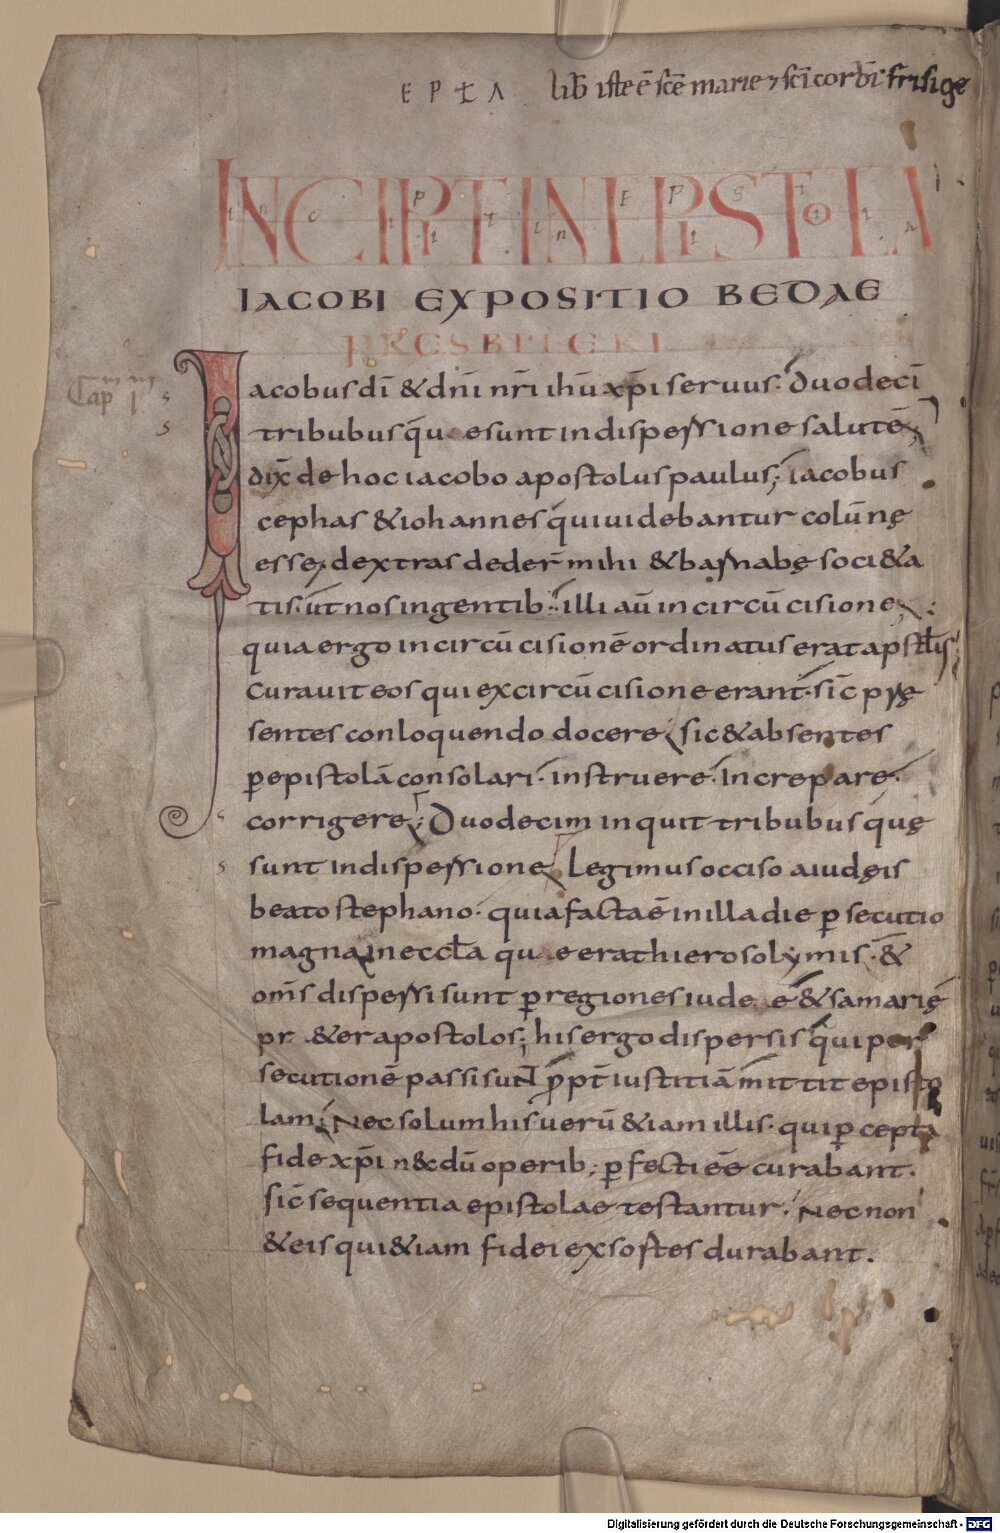 E P t A lib̅ iste e̅ sc̅e marie ⁊ sc̅i corb̅i frisige
INCIPIT IN EPISTOLA
IACOBI EXPOSITIO BEDAE
PRESBITERI
Cap I
Iacobus di̅ & dn̅i nr̅i ihu̅ xp̅i seruus. duodeci̅
tribubus q̅ue sunt in dispersione salute̅;
dix̅ de hoc iacobo apostolus paulus; iacobus
cephas & iohannes q̅ui uidebantur colu̅nę
esse, dextras deder̅ mihi & barnabę soci&a
tis. ut nos in gentib: illi au̅ in circu̅cisione;
quia ergo in circu̅cisione̅ ordinatus erat apstl̅is
curauit eos qui ex circu̅cisione erant. sic̅ pręsentes
sentes conloquendo docere, sic & absentes
ꝑ epistola̅ consolari. instruere. increpare.
corrigere; Duodecim inquit tribubus quę
sunt in dispersione; Legimus occiso a iudęis
beato stephano. quia facta e̅ in illa die ꝑsecutio
magna in eccl̅a que erat hierosolymis. &
om̅s dispersi sunt ꝑ regiones iudeę & samarię
pr & er apostolos; his ergo dispersis q̅ui per
secutione̅ passi sunt ꝓpt̅ iustitia̅ mittit episto
lam; Nec solum his ueru̅ & iam illis. qui ꝑcepta
fide xp̅i necdu̅ operib; ꝑfecti e̅e curabant.
sic̅ sequentia epistolae testantur. Nec non
& eis qui &iam fidei exsortes durabant.
Digitalisierung gefördert durch die Deutsche Forschungsgemeinschaft - DFG